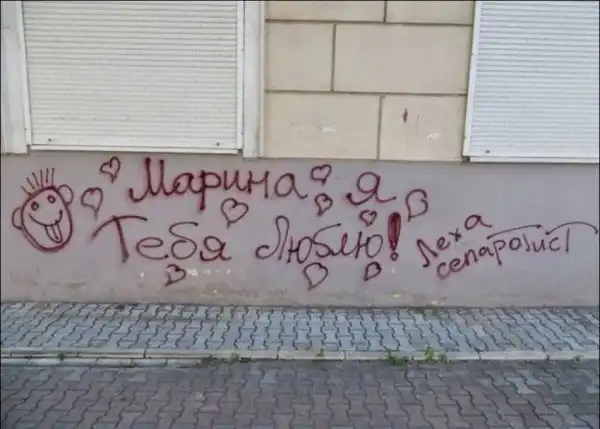 Марина я
Тебя Люблю!
Леха
сепаротист